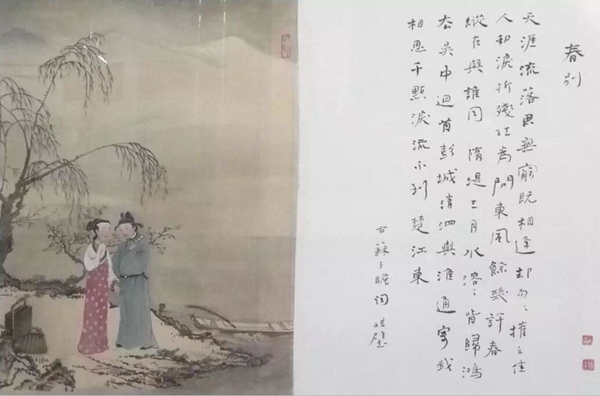 春別
天涯流落思無窮既相逢却匆々攜手佳
人和淚折殘紅為問東風餘幾許春
縱在與誰同隋堤三月水溶々背歸鴻
去吳中迴首彭城清泗與淮通寄我
相思千點淚流不到楚江東
右蘇子瞻詞